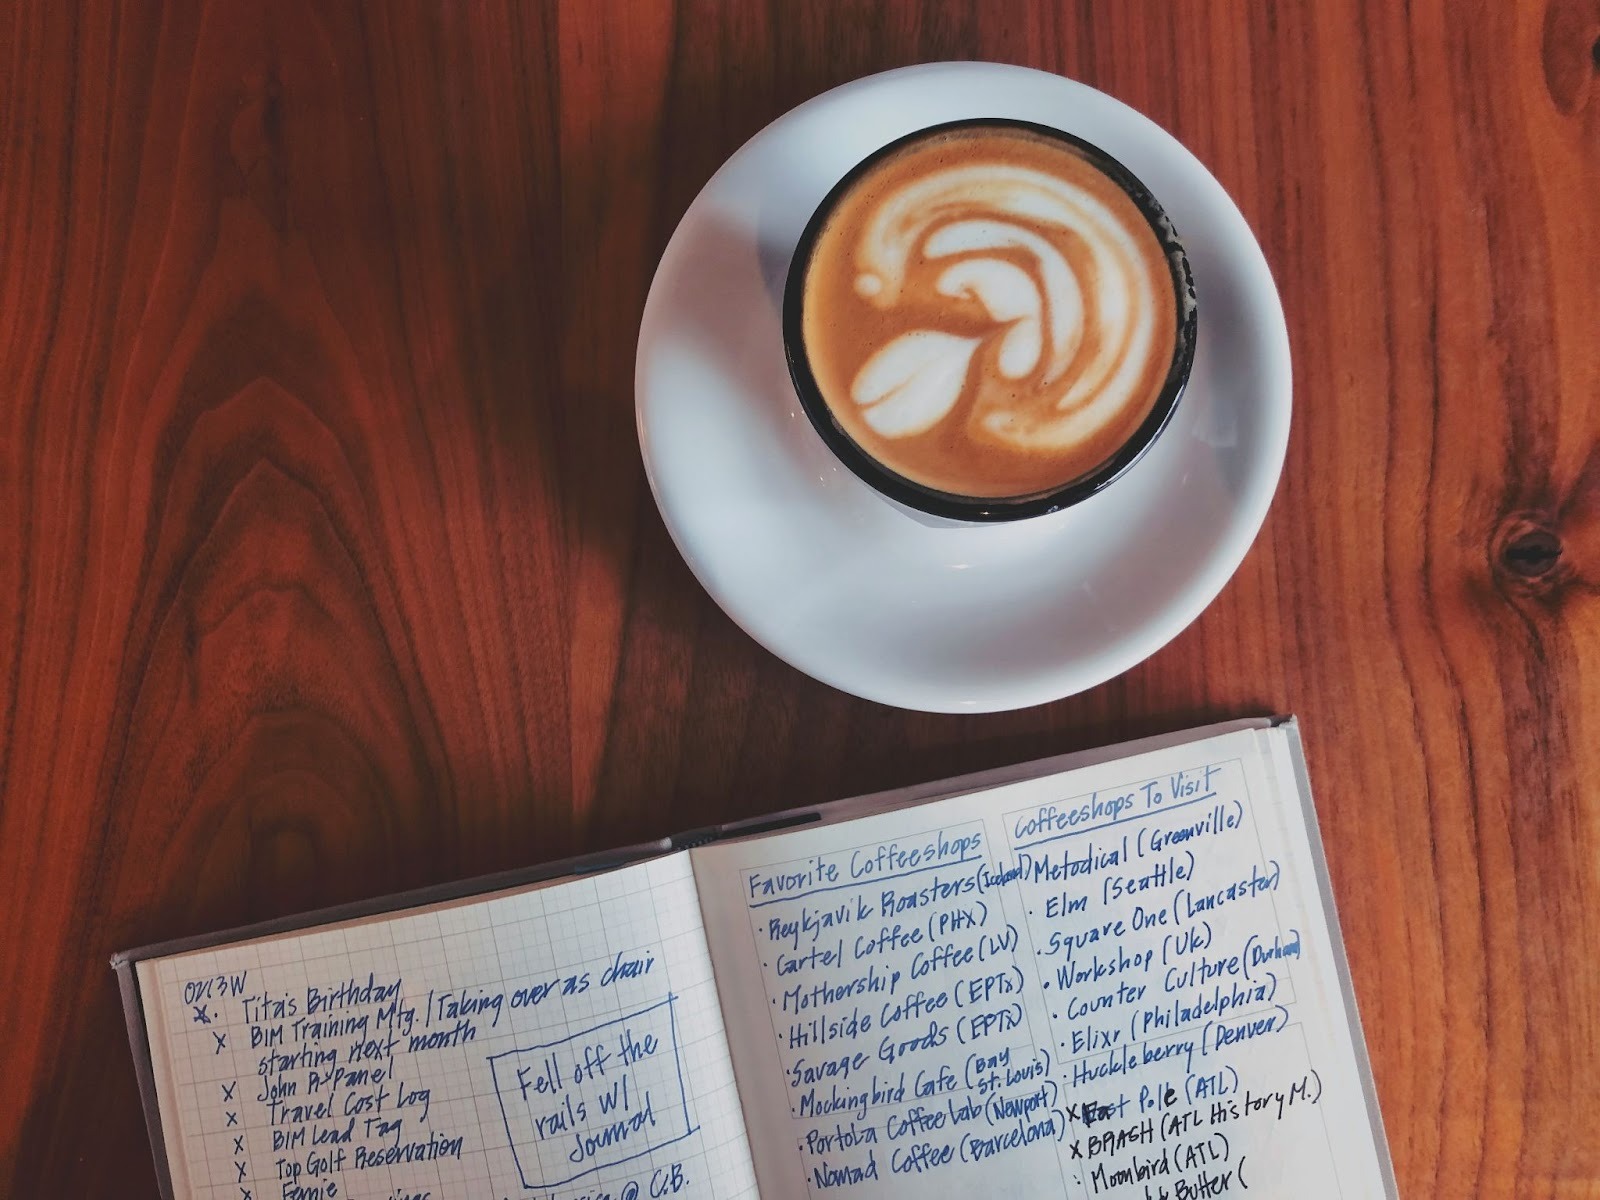 Tita's Birthday
BIM Training Mtg. / Taking over as chair
starting next month
X John R-Panel
X Travel Cost Log
X BIM Lead Tag
X Top Golf Reservation
X Fernie
@ C.B.
Fell off the
rails W/
Journal
Favorite Coffeeshops
· Reykjavik Roasters (Iceland)
· Cartel Coffee (PHX)
· Mothership Coffee (LV)
· Hillside Coffee (EPTX)
· Savage Goods (EPTX)
· Mockingbird Cafe (Bay
St. Louis)
· Portola Coffee Lab (Newport)
· Nomad Coffee (Barcelona)
Coffeeshops To Visit
· Metodical (Greenville)
· Elm (Seattle)
· Square One (Lancaster)
· Workshop (UK)
· Counter Culture (Durham)
· Elixr (Philadelphia)
· Huckleberry (Denver)
X East Pole (ATL)
X BRASH (ATL History M.)
· Moonbird (ATL)
Butter (